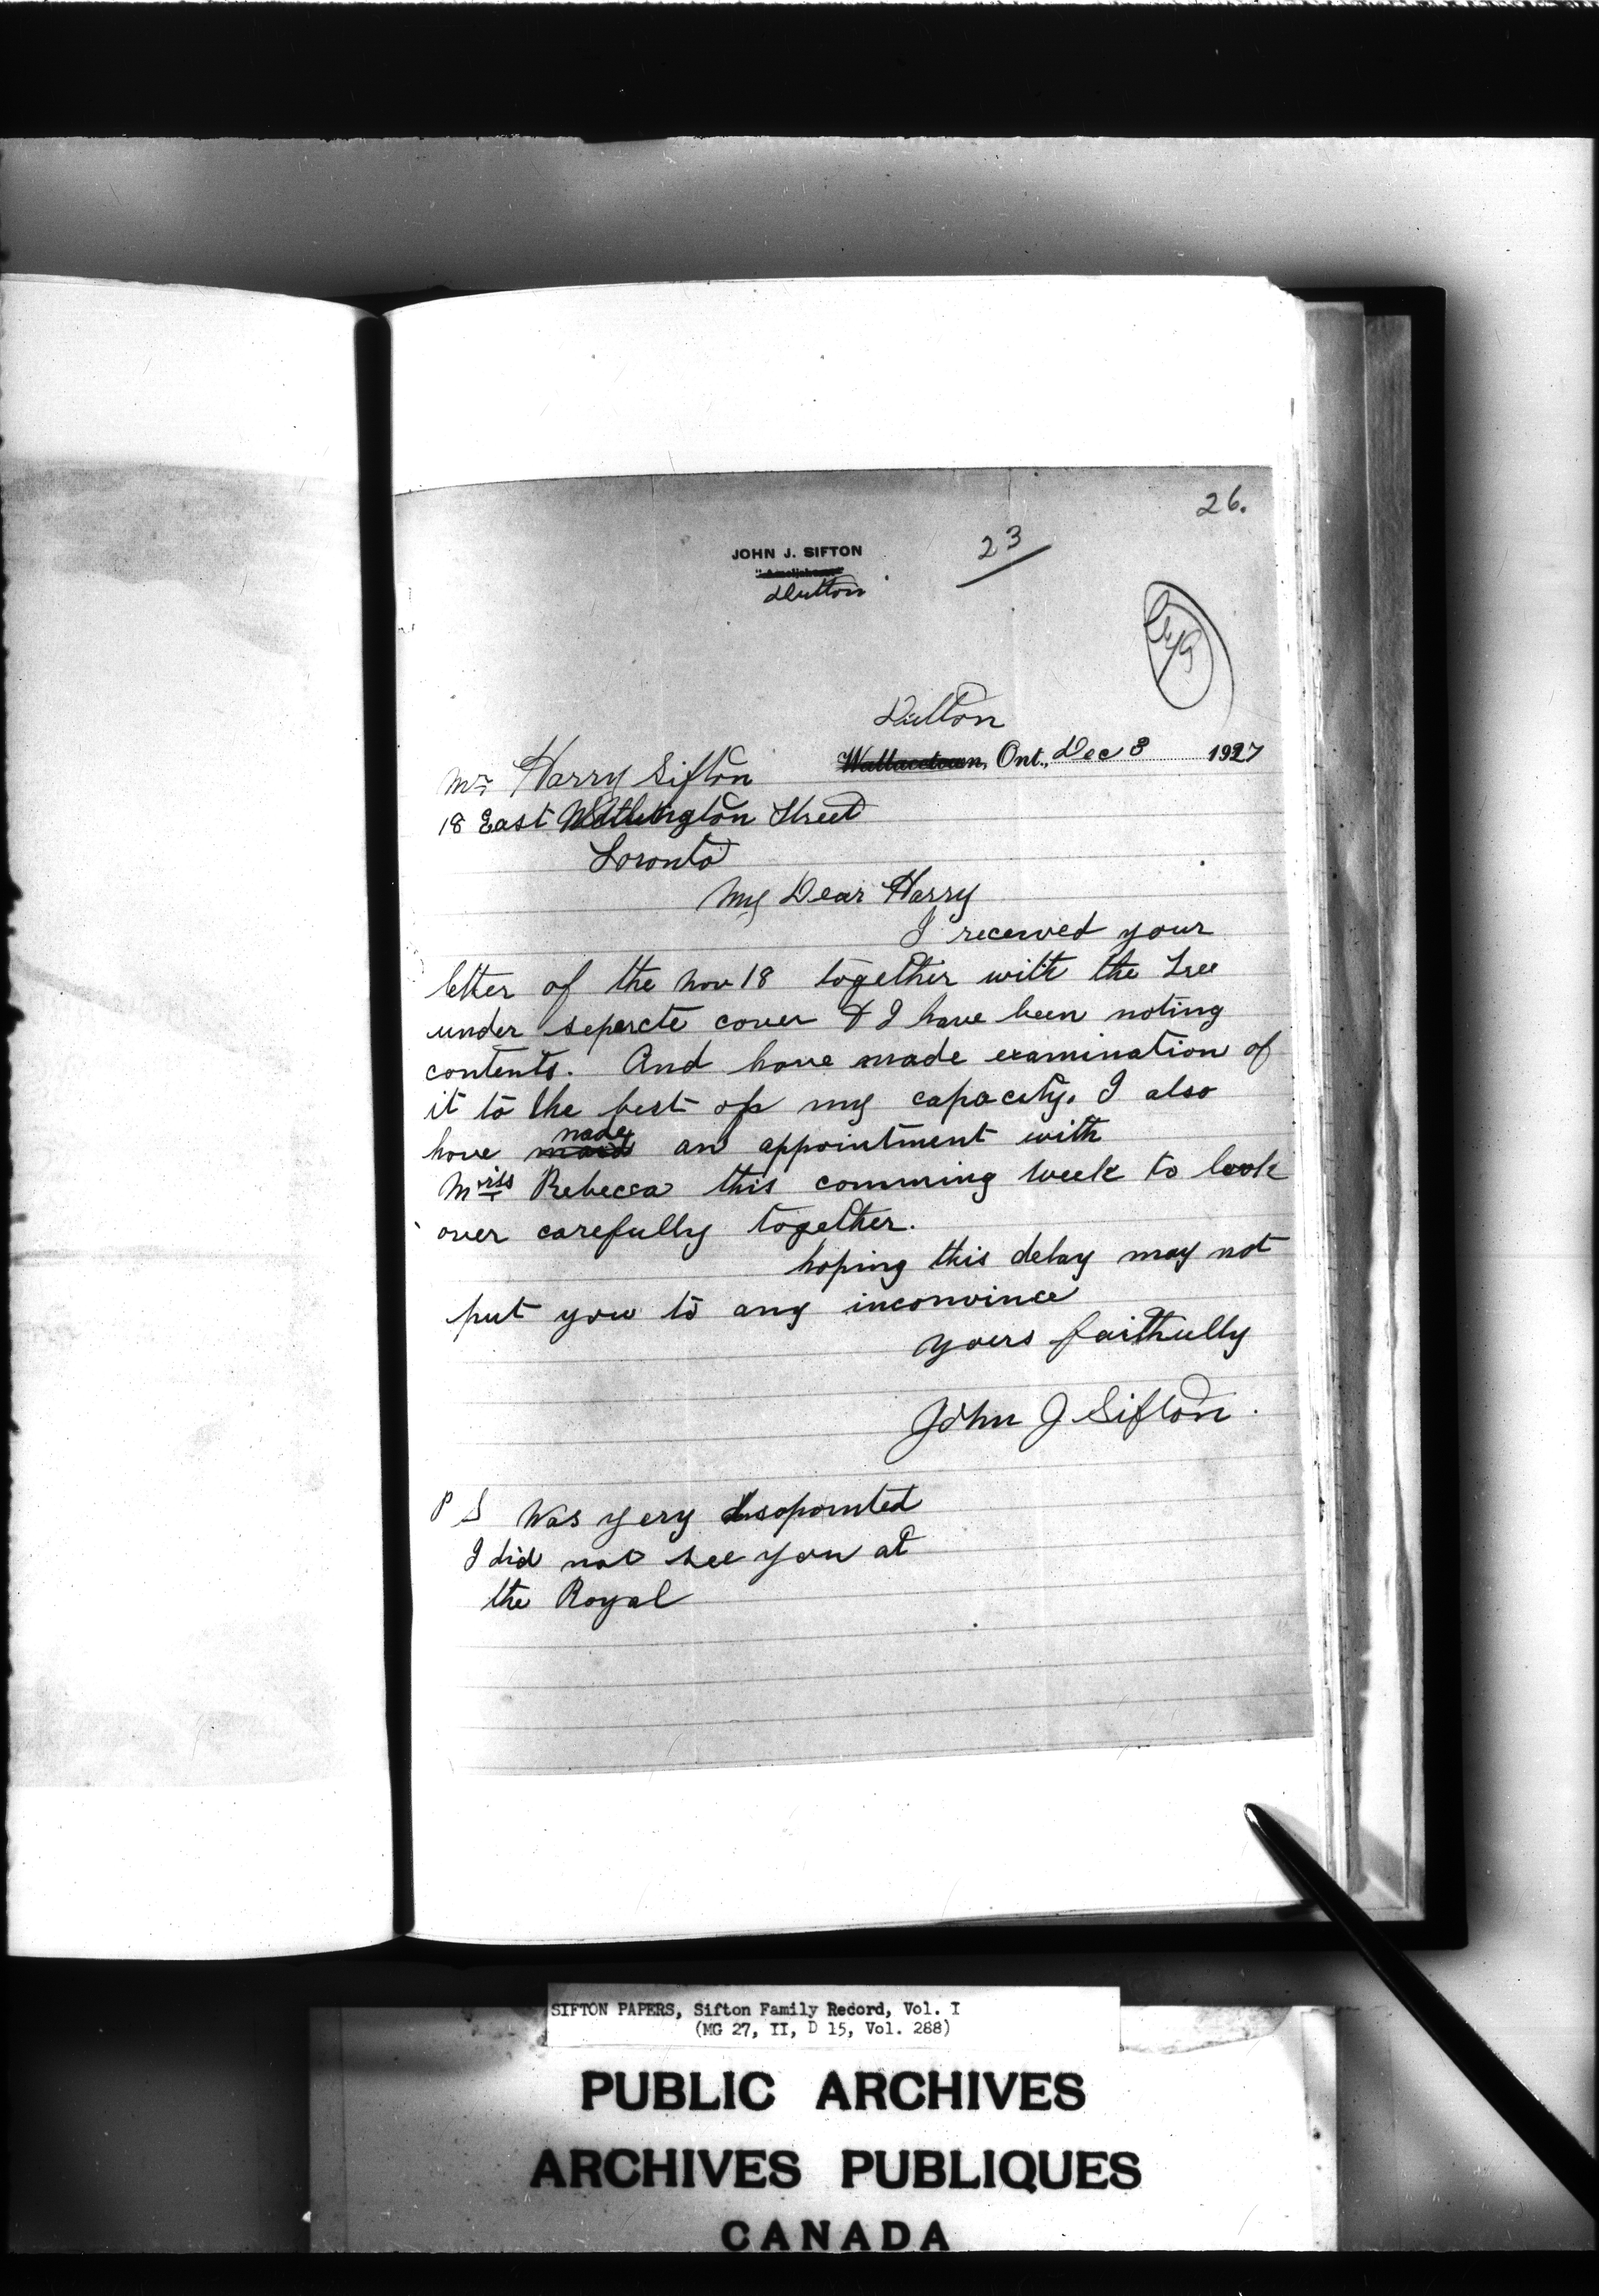 26.
23
JOHN J. SIFTON
Dutton
Dutton
Wallacetown, Ont., Dec 8 1927
Mr Harry Sifton
18 East Wellington Street
Toronto
My Dear Harry
I received your
letter of the Nov 18 together with the Tree
under seperete cover & I have been noting
contents. And have made examination of
it to the best of my capacity. I also
have made an appointment with
Miss Rebecca this comming week to look
over carefully together.
hoping this delay may not
put you to any inconvince
yours faithfully
John J Sifton.
P S Was very disapointed
I did not see you at
the Royal
SIFTON PAPERS, Sifton Family Record, Vol. I
(MG 27, II, D 15, Vol. 288)
PUBLIC ARCHIVES
ARCHIVES PUBLIQUES
CANADA